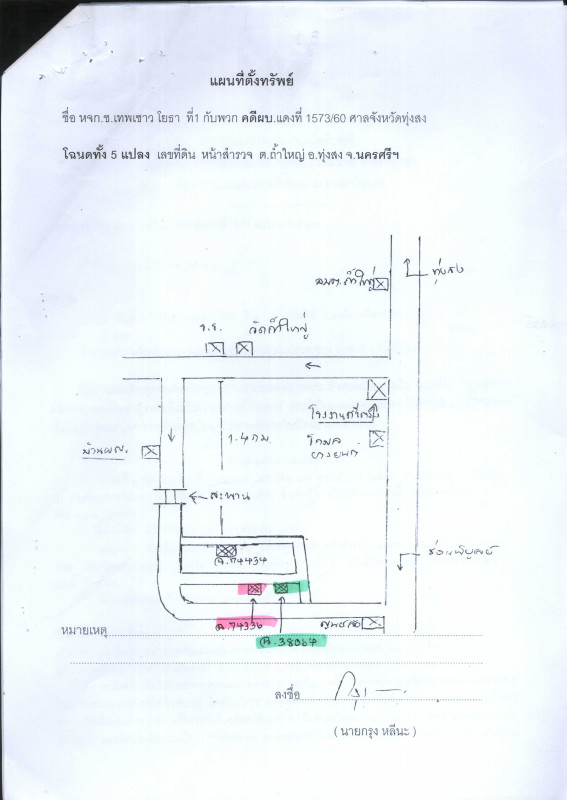 แผนที่ตั้งทรัพย์
ชื่อ หจก.ช.เทพเชาว โยธา ที่1 กับพวก คดีผบ.แดงที่ 1573/60 ศาลจังหวัดทุ่งสง
โฉนดทั้ง 5 แปลง เลขที่ดิน หน้าสำรวจ ต.ถ้ำใหญ่ อ.ทุ่งสง จ.นครศรีฯ
อบต.ถ้ำใหญ่
ทุ่งสง
ร.ร. วัดถ้ำใหญ่
โรงงาน
1.4 กม
บ้านผญ.
สะพาน
ร่อนพิบูลย์
ฉ.74434
ฉ.74336
ฉ.38064
หมายเหตุ
ลงชื่อ
( นายกรุง หลีนะ )